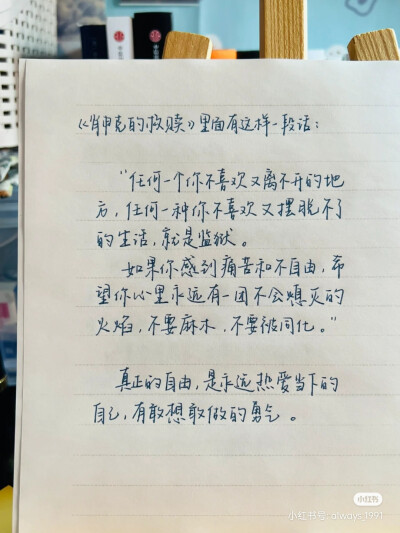 《肖申克的救赎》里面有这样一段话：
“任何一个你不喜欢又离不开的地
方，任何一种你不喜欢又摆脱不了
的生活，就是监狱。
如果你感到痛苦和不自由，希
望你心里永远有一团不会熄灭的
火焰，不要麻木，不要被同化。”
真正的自由，是永远热爱当下的
自己，有敢想敢做的勇气。
小红书
小红书号：always1991